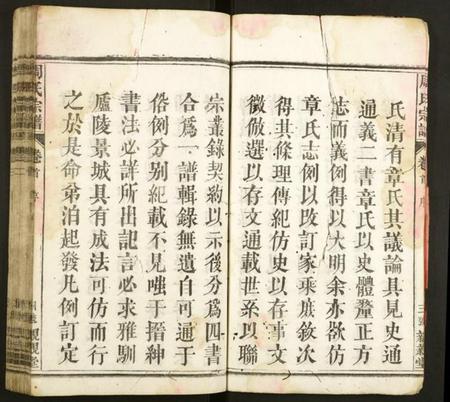 氏清有章氏其議論具見史通
通義二書章氏以史體釐正方
志而義例得以大明余亦欲仿
章氏志例以改訂家乘庶敘次
得其條理傳紀仿史以存事文
徵倣選以存文通載世系以聯
宗叢錄契約以示後分爲四書
合爲一譜輯錄無遺自可通于
俗例分別紀載不見嗤于搢紳
書法必詳所出記言必求雅馴
廬陵景城具有成法可仿而行
之於是命弟泊起發凡例訂定
周氏宗譜
卷首
序
二
周氏宗譜
卷首
序
三